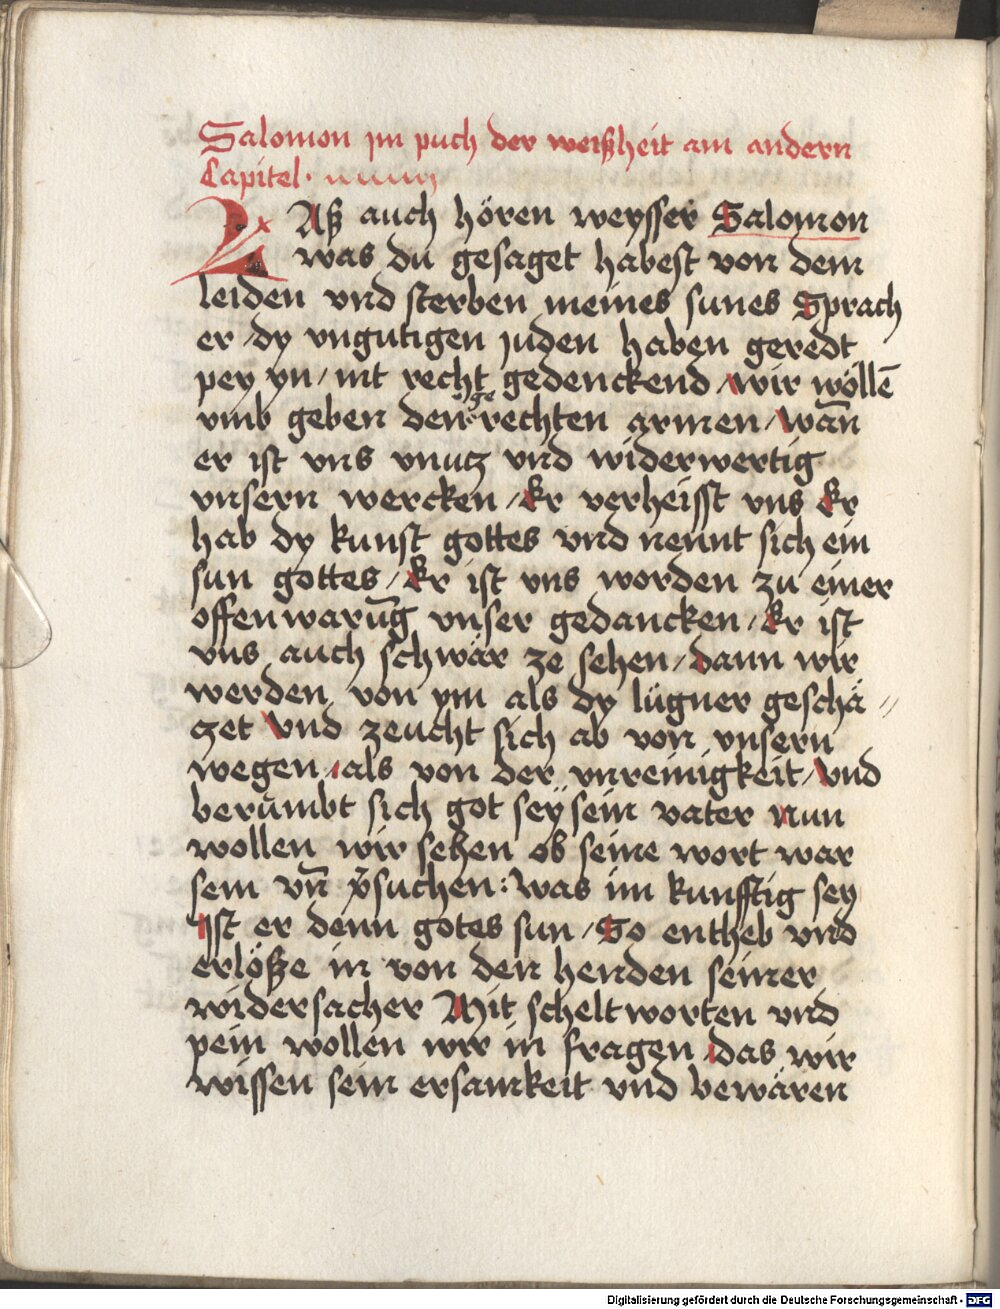 Salomon jm puch der weißheit am andern
Capitel.
LAß auch hören weysser Salomon
was du gesaget habest von dem
leiden vnd sterben meines sunes Sprach
er / dy vngutigen juden haben geredt
pey yn / nit recht gedenckend / wir wöllē
vmb geben den gerechten armen / wān
er ist vns vnutz vnd widerwertig
vnsern wercken / Er verheisst vns Er
hab dy kunst gottes vnd nennt sich ein
sun gottes / Er ist vns worden zu einer
offenwarūg vnser gedancken / Er ist
vns auch schwär ze sehen / dann wir
werden von ym als dy lügner geschä〃
czet Vnd zeucht sich ab von vnsern
wegen / als von der vnreinigkeit / Vnd
berümbt sich got seÿ sein vater Nun
wollen wir sehen ob seine wort war
sein vn̄ v̓suchen : was im kunfftig sey
Ist er denn gotes sun / So entheb vnd
erlöße in von den henden seiner
widersacher Mit scheltworten vnd
pein wollen wir in fragen / das wir
wissen sein ersamkeit vnd bewären
Digitalisierung gefördert durch die Deutsche Forschungsgemeinschaft - DFG